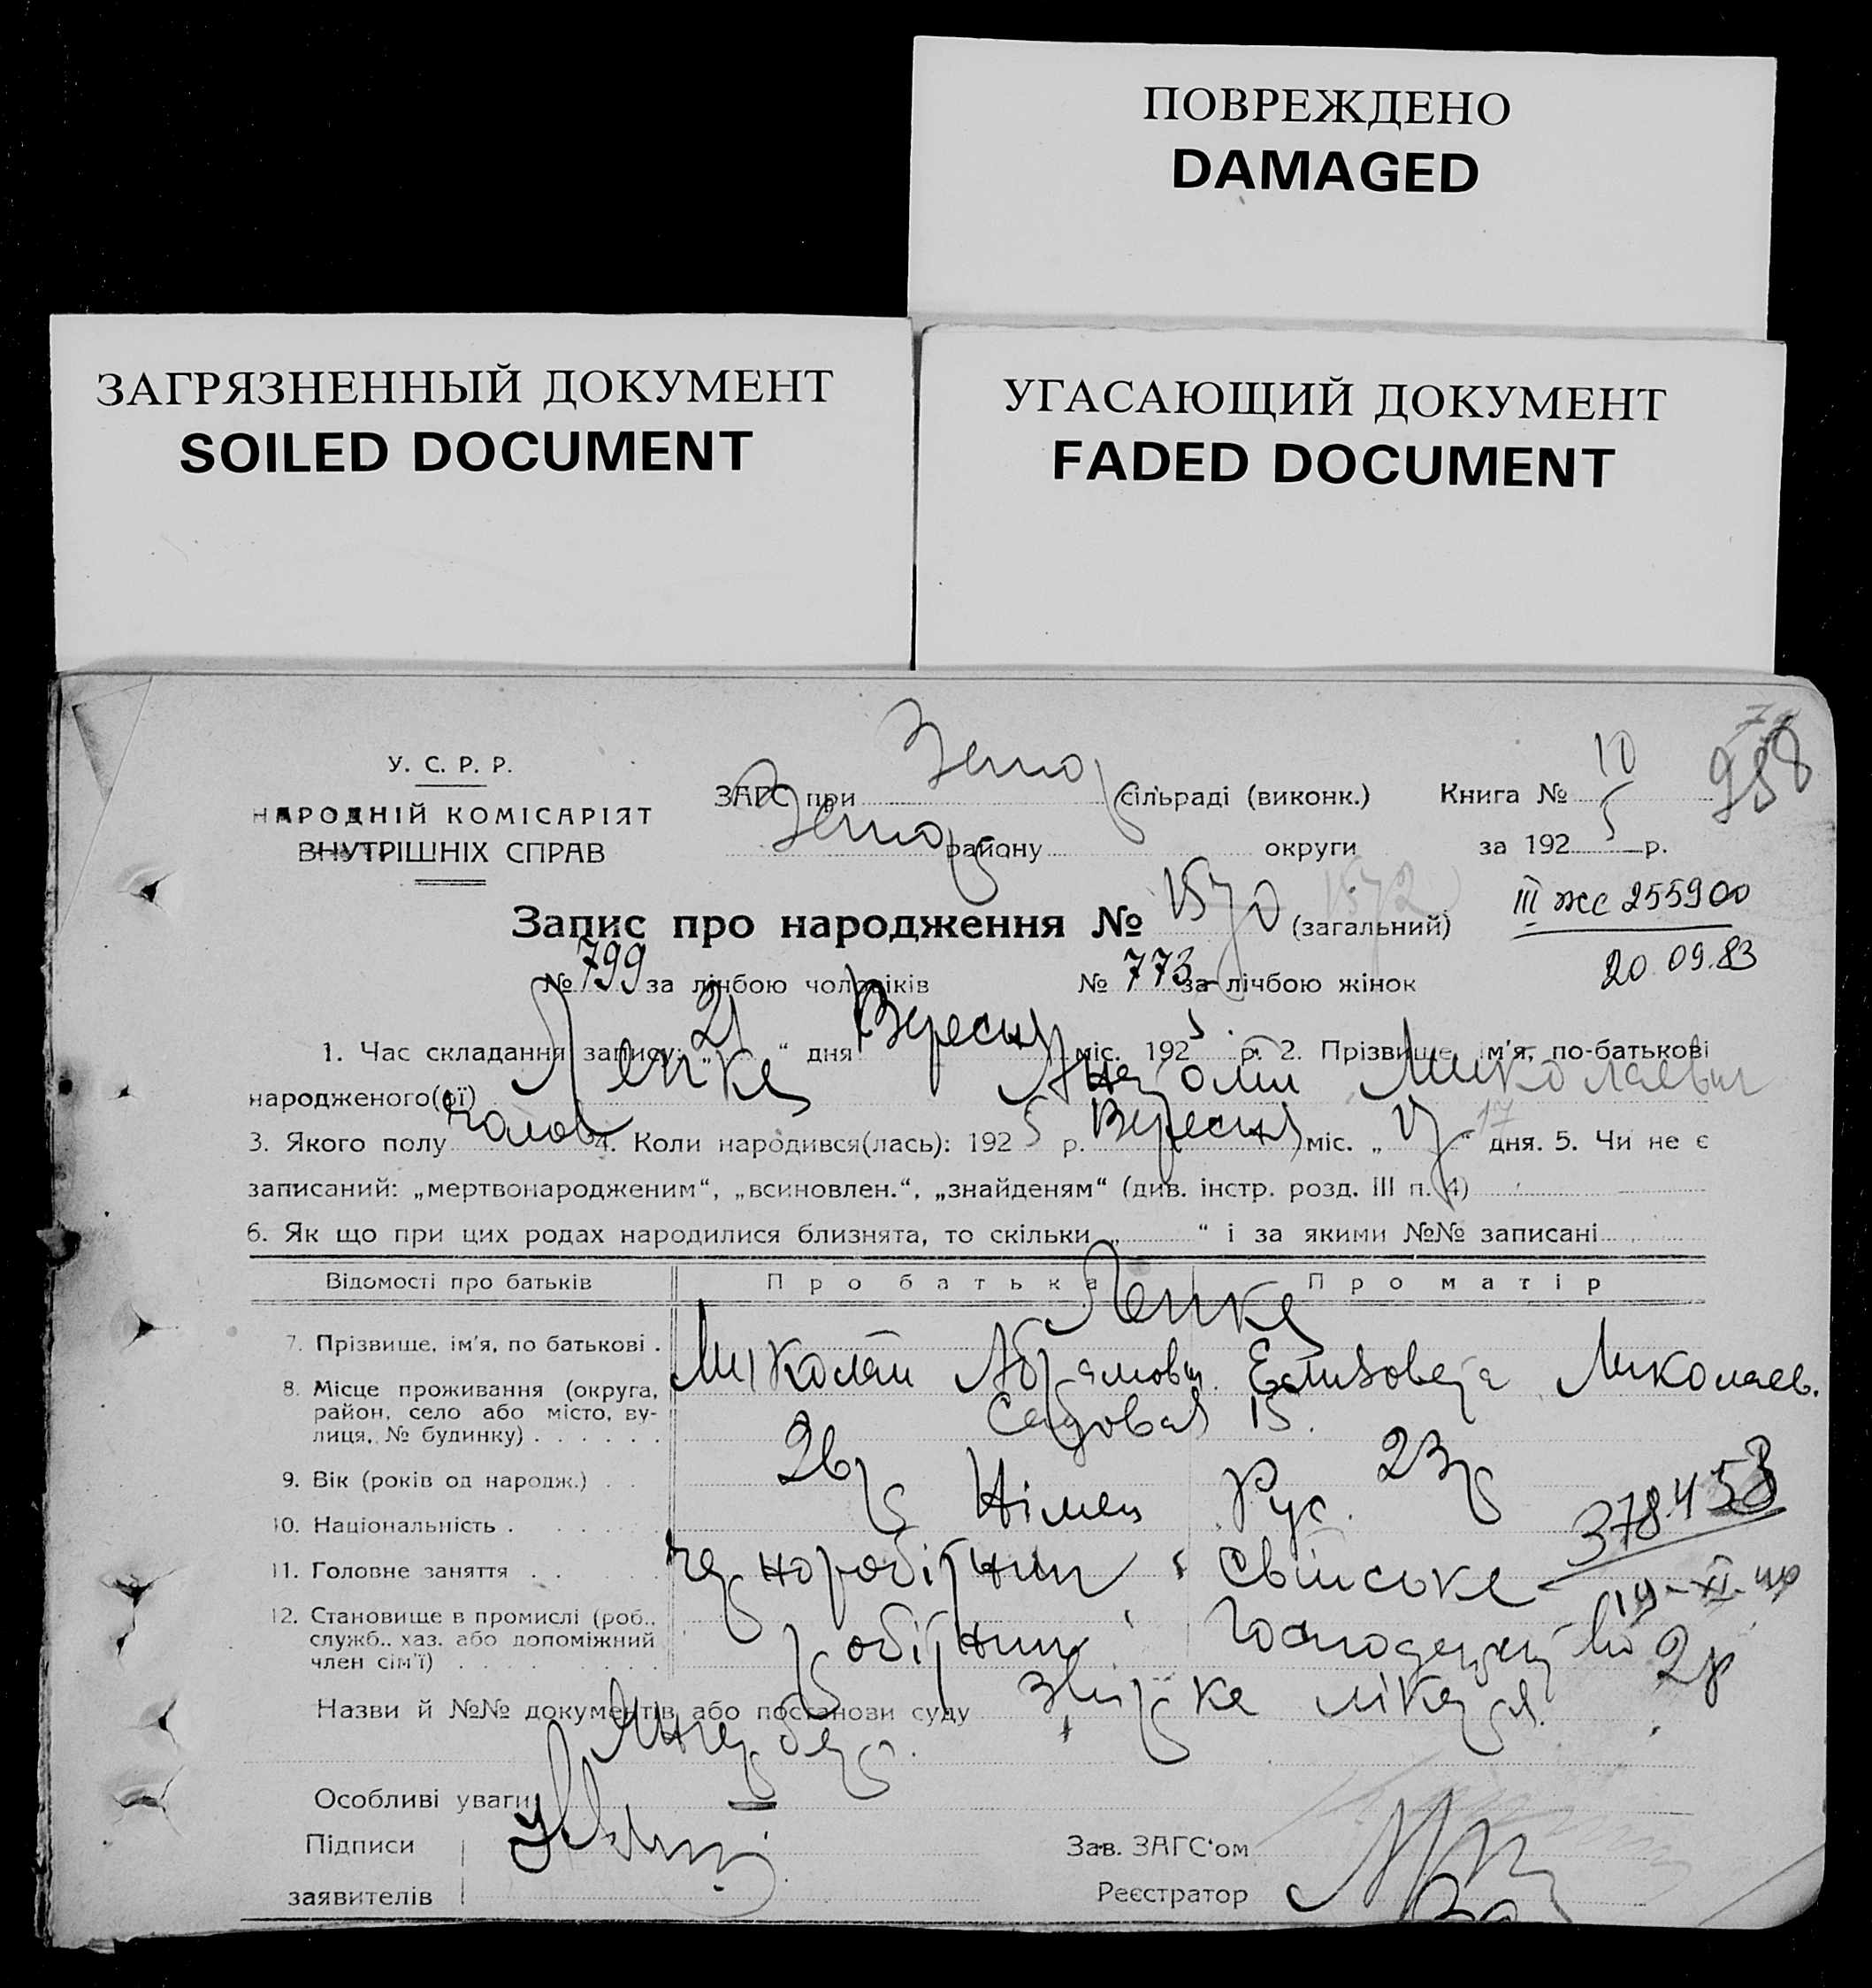 ПОВРЕЖДЕНО
DAMAGED
ЗАГРЯЗНЕННЫЙ ДОКУМЕНТ
SOILED DOCUMENT
УГАСАЮЩИЙ ДОКУМЕНТ
FADED DOCUMENT
988
У. С. Р. Р.
НАРОДНІЙ КОМІСАРІЯТ
ВНУТРІШНІХ СПРАВ
ЗАГС при сільраді (виконк.) Книга № 10
району округи за 1925 р.
Запис про народження № 1570 (загальний) 1572
III жс 255900
20.09.83
№ 799 за лічбою чоловіків № 773 за лічбою жінок
1. Час складання запису: „ 21 “ дня Вересня міс. 1925 р. 2. Прізвище ім'я, по-батькові
народженого(ої) Лепке Анатолій Миколаевич
3. Якого полу чолов 4. Коли народився(лась): 1925 р. Вересня міс. „ 17 “ 17 дня. 5. Чи не є
записаний: „мертвонародженим“, „всиновлен.“, „знайденям“ (див. інстр. розд. III п. 4)
6. Як що при цих родах народилися близнята, то скільки „ “ і за якими №№ записані
Відомості про батьків Про батька Про матір
Лепке
7. Прізвище, ім'я, по батькові . Миколай Абрамович. Елизовета Миколаев.
8. Місце проживання (округа, район, село або місто, вулиця, № будинку) . . . . . . Садовая 15.
9. Вік (років од народж.) . . 26 р 23 р
10. Національність . Німец Рус.
378453
19-XI-40
11. Головне заняття . . чорноробітник свійське
12. Становище в промислі (роб., служб., хаз. або допоміжний член сім'ї) робітник господарство
2р
Назви й №№ документів або постанови суду Звістка лікаря
Особливі уваги
Підписи Зав. ЗАГС'ом
заявителів Реєстратор